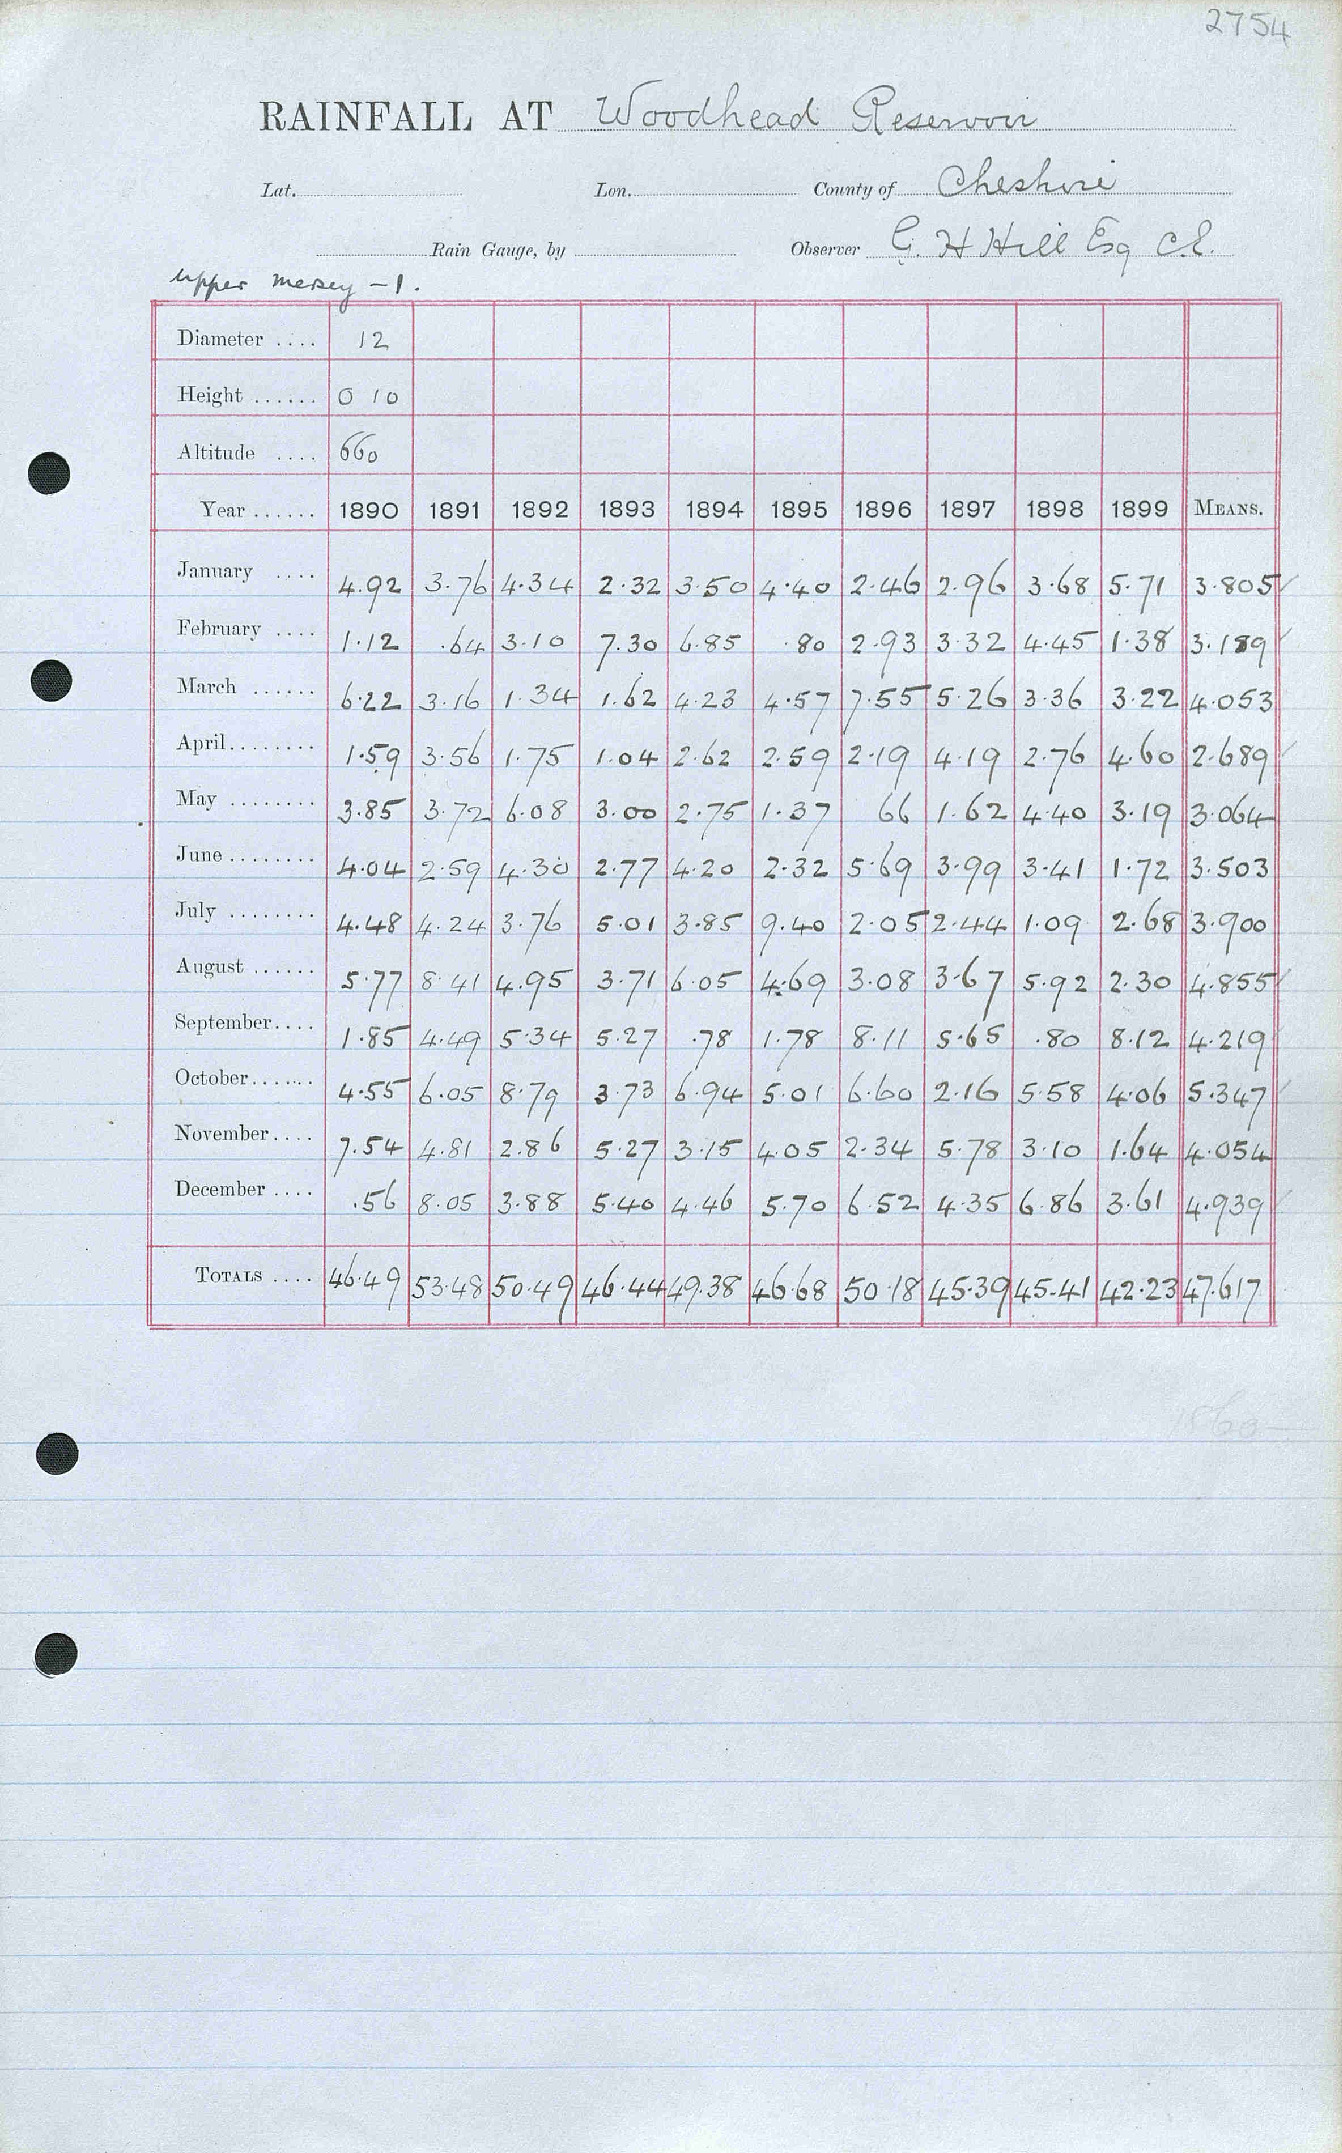 2754
RAINFALL AT Woodhead Reservoir
Lat. Lon. County of Cheshire
Rain Gauge, by Observer G. H Hill Esq C.E.
Upper Mersey - 1.
Diameter .... 12
Height ...... 0 10
Altitude .... 660
Year ...... 1890 1891 1892 1893 1894 1895 1896 1897 1898 1899 MEANS.
January .... 4.92 3.76 4.34 2.32 3.50 4.40 2.46 2.96 3.68 5.71 3.805
February .... 1.12 .64 3.10 7.30 6.85 .80 2.93 3.32 4.45 1.38 3.189
March ...... 6.22 3.16 1.34 1.62 4.23 4.57 7.55 5.26 3.36 3.22 4.053
April........ 1.59 3.56 1.75 1.04 2.62 2.59 2.19 4.19 2.76 4.60 2.689
May ........ 3.85 3.72 6.08 3.00 2.75 1.37 66 1.62 4.40 3.19 3.064
June ........ 4.04 2.59 4.30 2.77 4.20 2.32 5.69 3.99 3.41 1.72 3.503
July ........ 4.48 4.24 3.76 5.01 3.85 9.40 2.05 2.44 1.09 2.68 3.900
August ...... 5.77 8 41 4.95 3.71 6.05 4.69 3.08 3.67 5.92 2.30 4.855
September.... 1.85 4.49 5.34 5.27 .78 1.78 8.11 5.65 .80 8.12 4.219
October...... 4.55 6.05 8.79 3.73 6.94 5.01 6.60 2.16 5.58 4.06 5.347
November.... 7.54 4.81 2.86 5.27 3.15 4.05 2.34 5.78 3.10 1.64 4.054
December .... .56 8.05 3.88 5.40 4.46 5.70 6.52 4.35 6.86 3.61 4.939
TOTALS .... 46.49 53.48 50.49 46.44 49.38 46.68 50.18 45.39 45.41 42.23 47.617